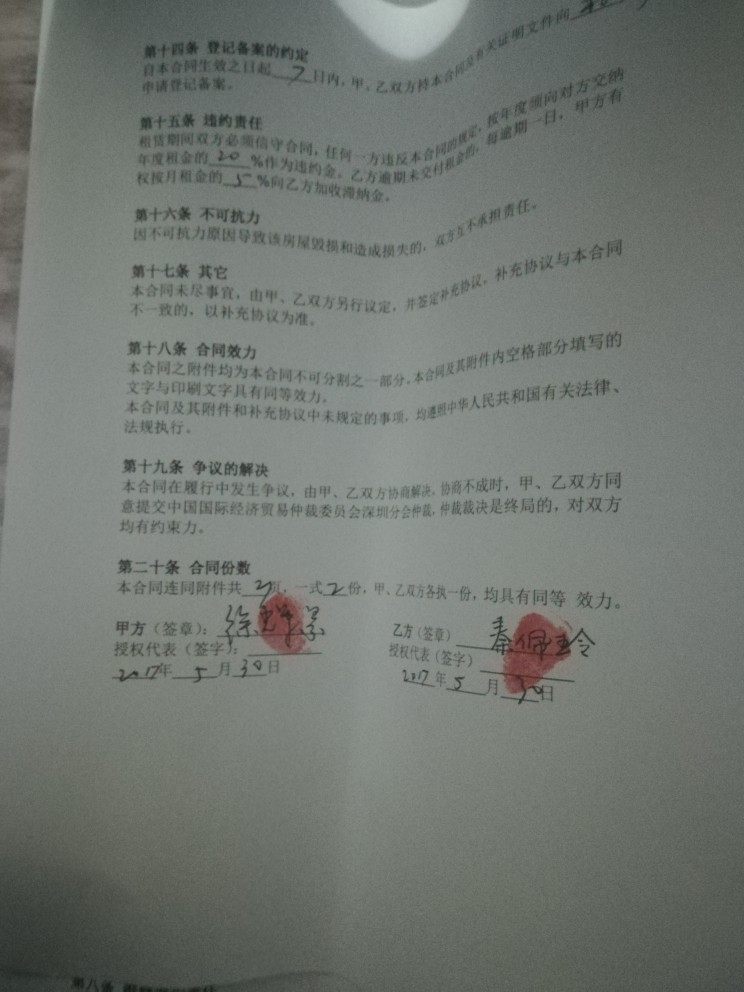 第十四条 登记备案的约定
自本合同生效之日起 7 日内，甲、乙双方持本合同及有关证明文件向
申请登记备案。
第十五条 违约责任
租赁期间双方必须信守合同，任何一方违反本合同的规定，按年度须向对方交纳
年度租金的 20 %作为违约金。乙方逾期未交付租金的，每逾期一日，甲方有
权按月租金的 5 %向乙方加收滞纳金。
第十六条 不可抗力
因不可抗力原因导致该房屋毁损和造成损失的，双方互不承担责任。
第十七条 其它
本合同未尽事宜，由甲、乙双方另行议定，并签定补充协议。补充协议与本合同
不一致的，以补充协议为准。
第十八条 合同效力
本合同之附件均为本合同不可分割之一部分。本合同及其附件内空格部分填写的
文字与印刷文字具有同等效力。
本合同及其附件和补充协议中未规定的事项，均遵照中华人民共和国有关法律、
法规执行。
第十九条 争议的解决
本合同在履行中发生争议，由甲、乙双方协商解决。协商不成时，甲、乙双方同
意提交中国国际经济贸易仲裁委员会深圳分会仲裁，仲裁裁决是终局的，对双方
均有约束力。
第二十条 合同份数
本合同连同附件共 2 页，一式 2 份，甲、乙双方各执一份，均具有同等 效力。
甲方（签章）：徐
乙方（签章） 秦佩玲
授权代表（签字）：
授权代表（签字）
2017年 5 月 30 日
2017 年 5 月 30 日
第八条